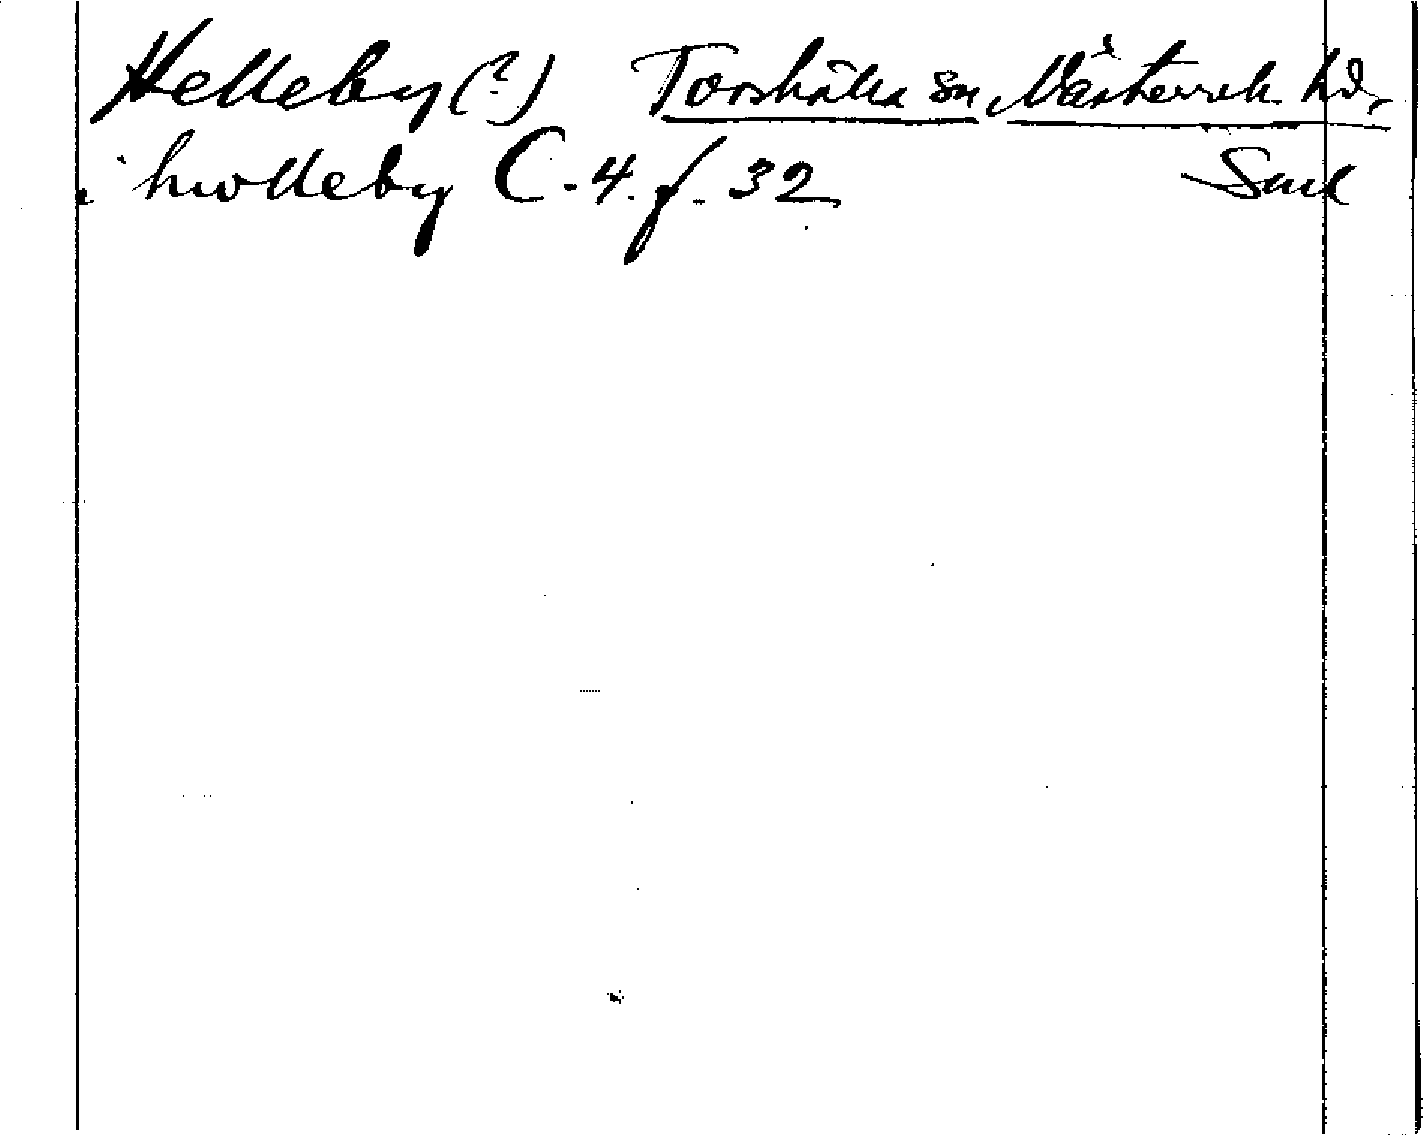 Helleby (?) Torshälla sn Västerrek hd,
i hwolleby C. 4. f. 32 Söd